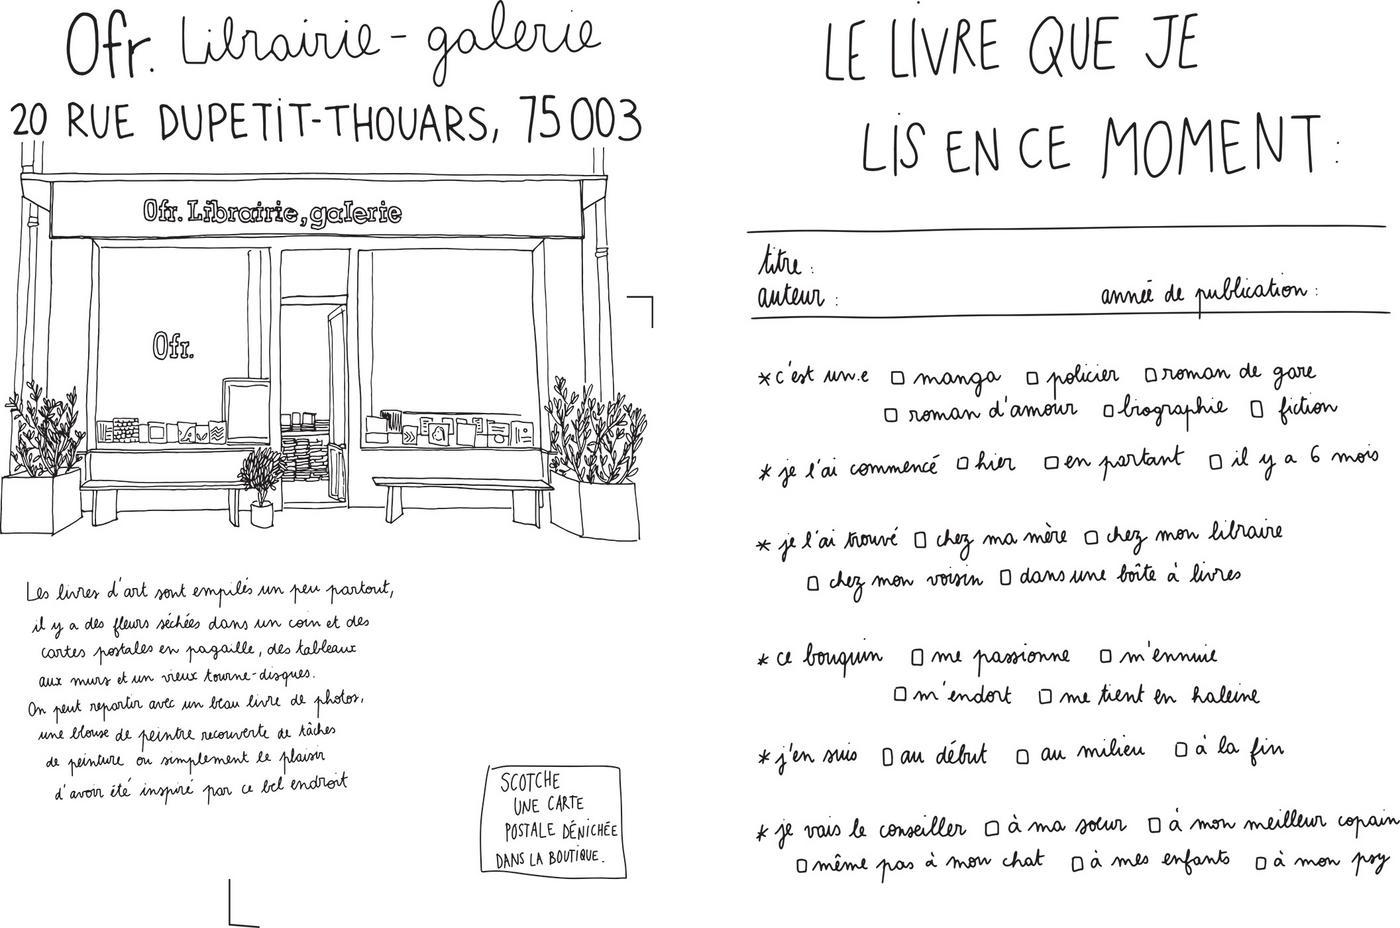 Ofr. Librairie - galerie
20 RUE DUPETIT-THOUARS, 75003
Ofr. Librairie, galerie
Ofr.
Les livres d'art sont empilés un peu partout,
il y a des fleurs séchées dans un coin et des
cartes postales en pagaille, des tableaux
aux murs et un vieux tourne-disques.
On peut repartir avec un beau livre de photos,
une blouse de peintre recouverte de tâches
de peinture ou simplement le plaisir
d'avoir été inspiré par ce bel endroit
SCOTCHE
UNE CARTE
POSTALE DÉNICHÉE
DANS LA BOUTIQUE.
LE LIVRE QUE JE
LIS EN CE MOMENT :
titre :
auteur : année de publication :
* c'est un.e □ manga □ policier □ roman de gare
□ roman d'amour □ biographie □ fiction
* je l'ai commencé □ hier □ en partant □ il y a 6 mois
* je l'ai trouvé □ chez ma mère □ chez mon libraire
□ chez mon voisin □ dans une boîte à livres
* ce bouquin □ me passionne □ m'ennuie
□ m'endort □ me tient en haleine
* j'en suis □ au début □ au milieu □ à la fin
* je vais le conseiller □ à ma sœur □ à mon meilleur copain
□ même pas à mon chat □ à mes enfants □ à mon psy